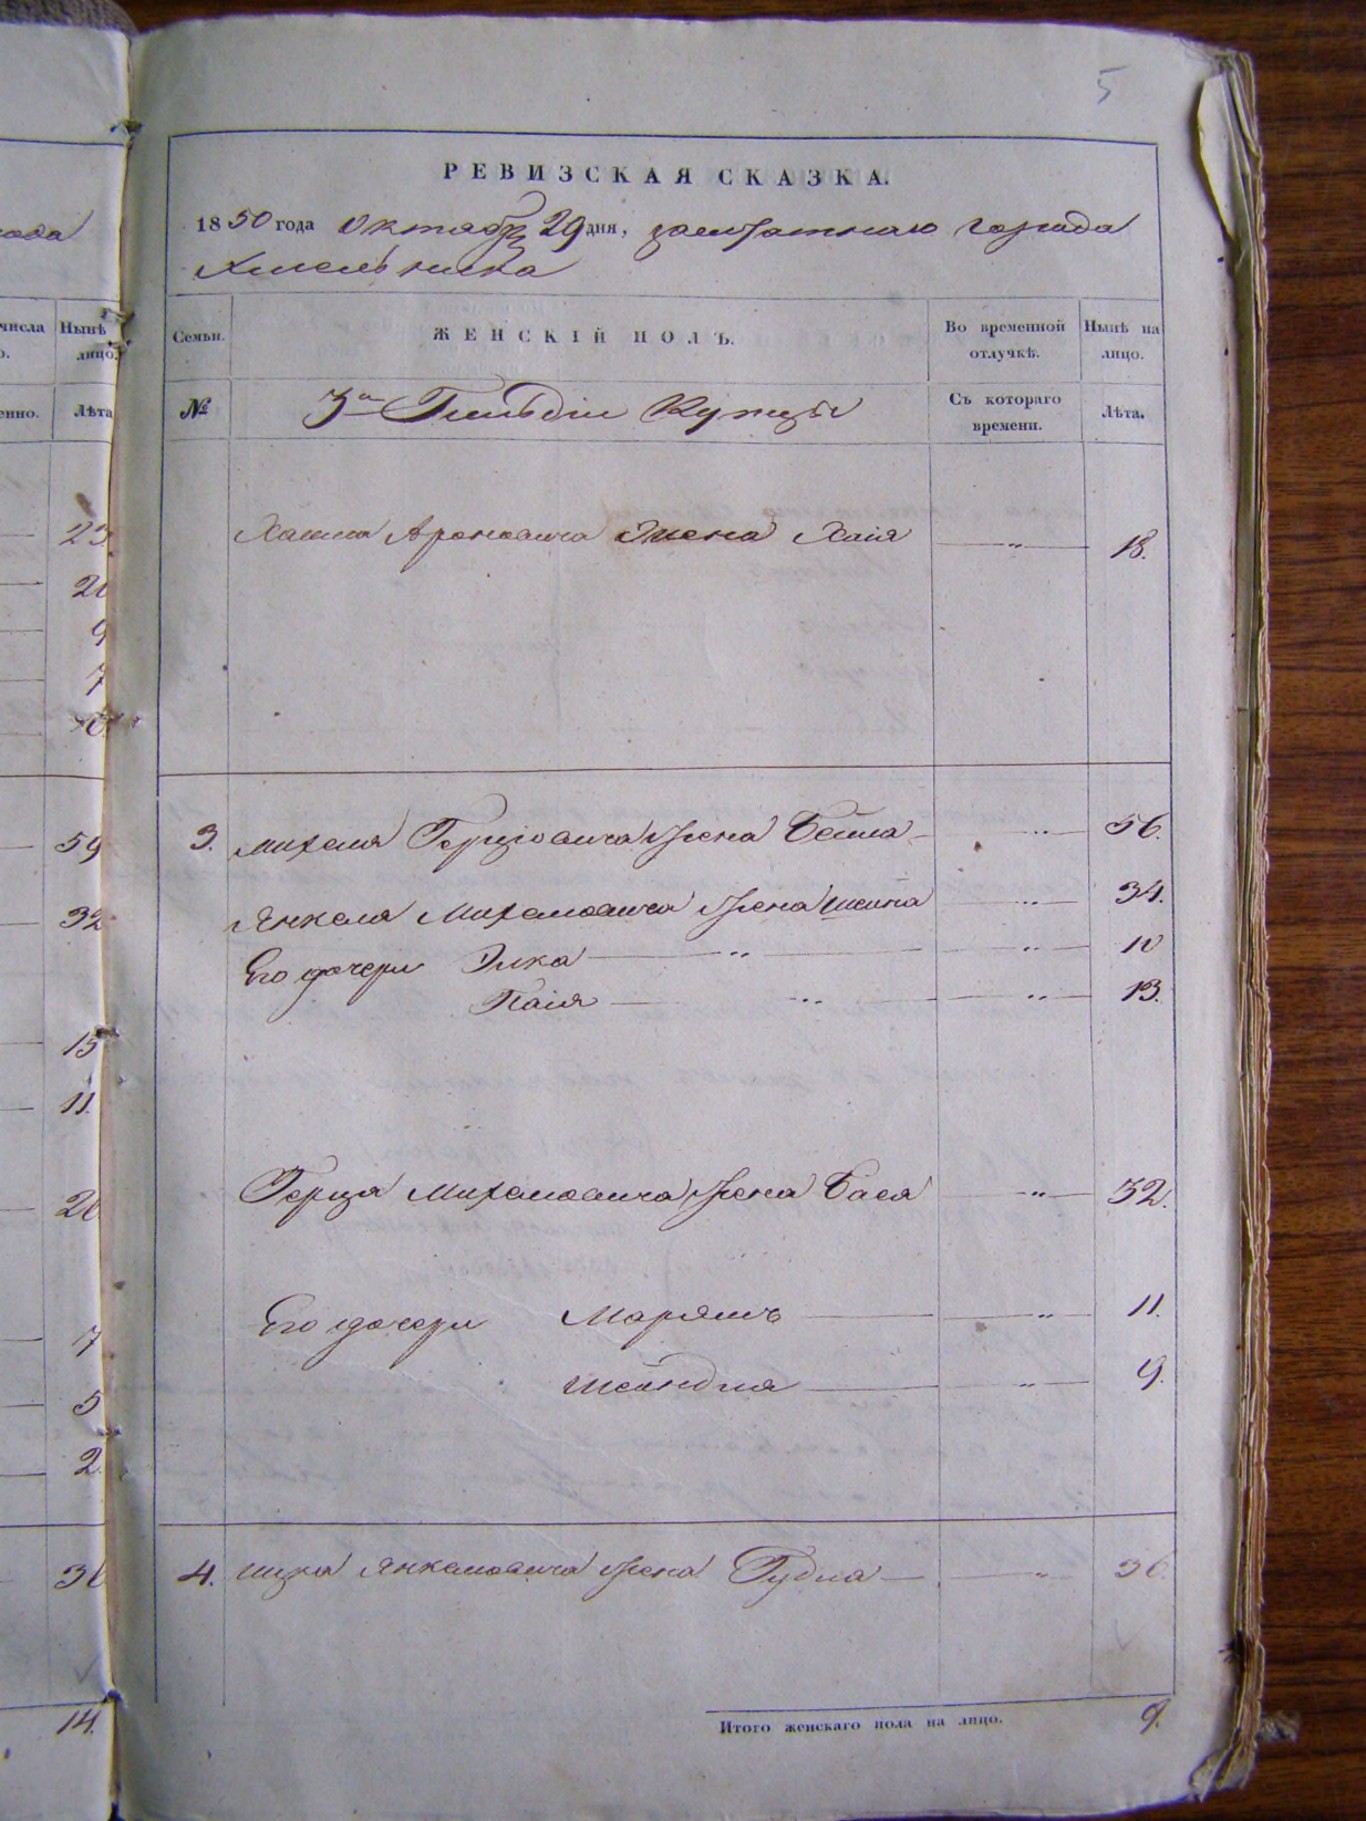 5
РЕВИЗСКАЯ СКАЗКА.
1850 года Октября 29 дня, заштатнаго города
Хмельника
Семьи. ЖЕНСКІЙ ПОЛЪ. Во временной отлучкѣ. Нынѣ на лицо.
№ 3й Гильдіи Купцы Съ котораго времени. Лѣта.
Хаима Ароновича Жена Хаія — „ — 18.
3. Михеля Герцовича Жена Бейла — „ — 56.
Янкеля Михелевича Жена Шейна — „ — 34.
Его дочери Элка — „ — „ — 10
Паія — „ — „ — 13.
Герца Михелевича Жена Бася — „ — 32.
Его дочери Марямъ — „ — 11.
Шейндля — „ — 9.
4. Ицка Янкелевича Жена Гудля — „ — 36.
Итого женскаго пола на лицо. 9.
ода
числа Нынѣ
о. лицо.
енно. Лѣта
23
9
7
59
32
15
11.
7
5
2
14.